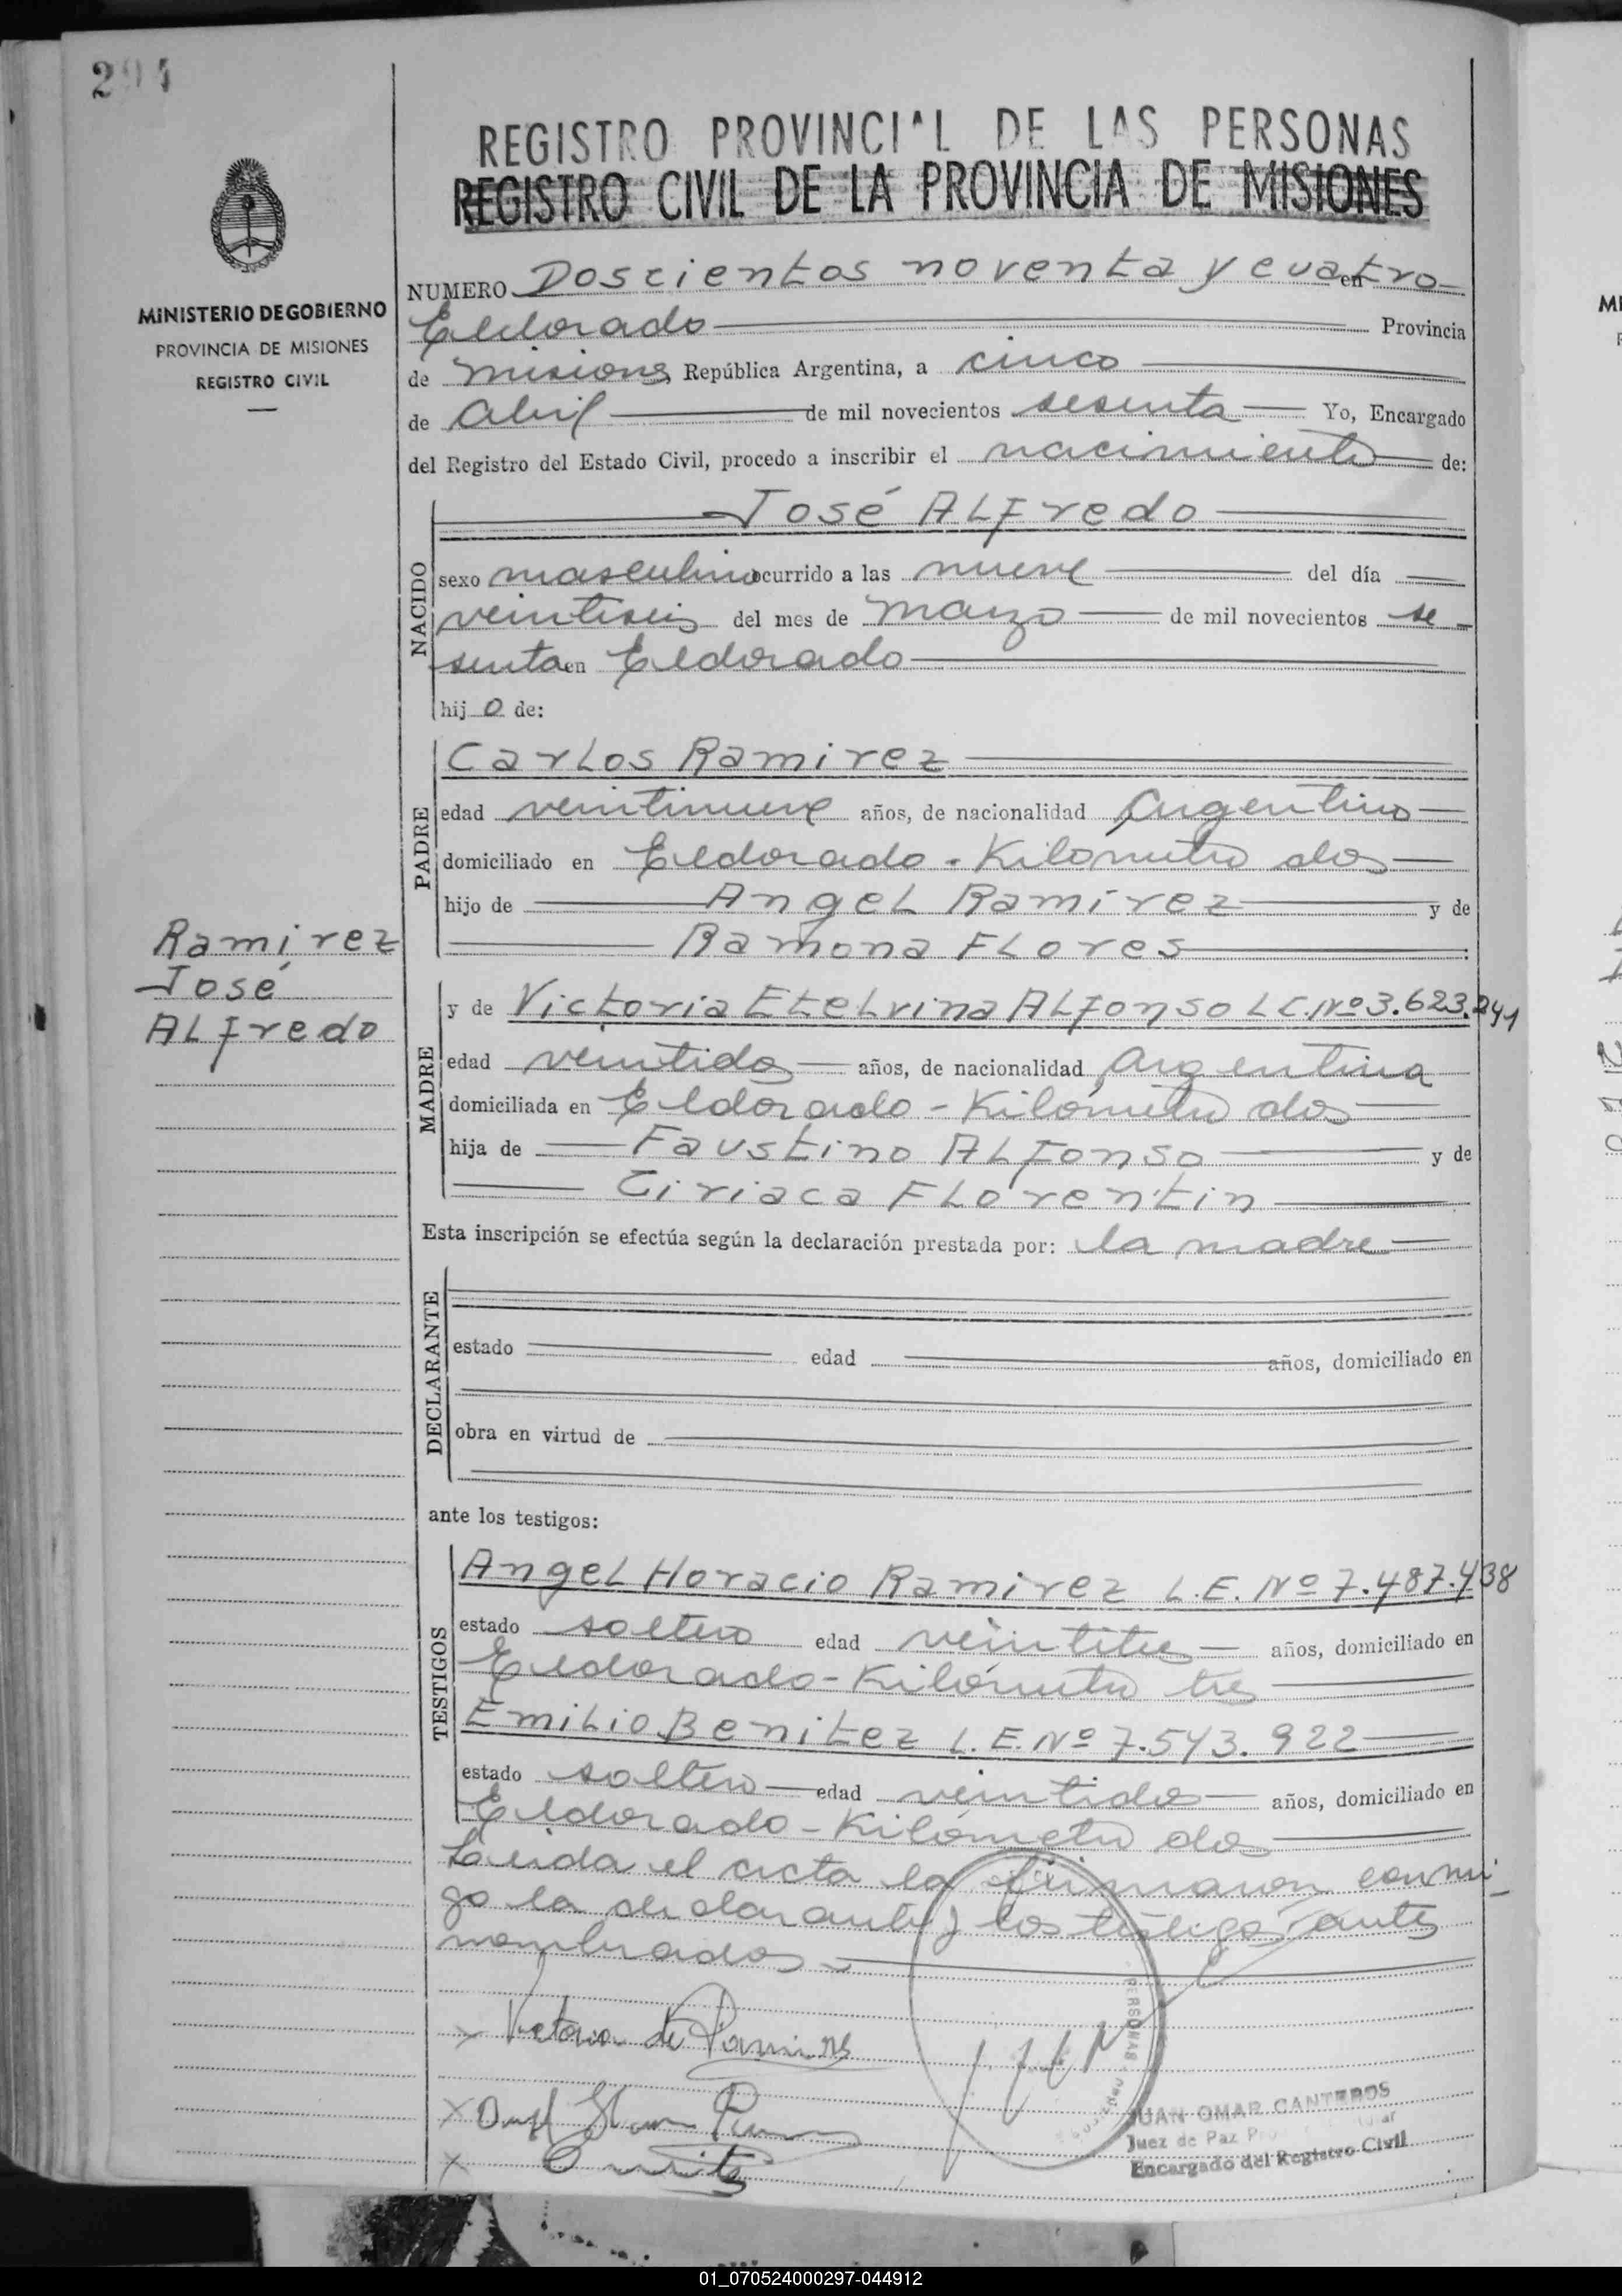 294
REGISTRO PROVINCIAL DE LAS PERSONAS
REGISTRO CIVIL DE LA PROVINCIA DE MISIONES
MINISTERIO DE GOBIERNO
PROVINCIA DE MISIONES
REGISTRO CIVIL
NUMERO Doscientos noventa y cuatro en
Eldorado Provincia
de Misiones República Argentina, a cinco
de Abril de mil novecientos sesenta Yo, Encargado
del Registro del Estado Civil, procedo a inscribir el nacimiento de:
NACIDO
José Alfredo
sexo masculino ocurrido a las nueve del día
veintiseis del mes de Marzo de mil novecientos se-
senta en Eldorado
hijo de:
PADRE
Carlos Ramirez
edad veintinueve años, de nacionalidad Argentino
domiciliado en Eldorado - Kilometro dos
hijo de Angel Ramirez y de
Ramona Flores
Ramirez
José
Alfredo
MADRE
y de Victoria Etelvina Alfonso L.C. Nº 3.623.241
edad veintidos años, de nacionalidad Argentina
domiciliada en Eldorado - Kilómetro dos
hija de Faustino Alfonso y de
Ciriaca Florentin
Esta inscripción se efectúa según la declaración prestada por: la madre
DECLARANTE
estado edad años, domiciliado en
obra en virtud de
ante los testigos:
TESTIGOS
Angel Horacio Ramirez L.E. Nº 7.487.438
estado soltero edad veintitres años, domiciliado en
Eldorado - Kilómetro tres
Emilio Benitez L.E. Nº 7.543.922
estado soltero edad veintidos años, domiciliado en
Eldorado - Kilómetro dos
Leida el acta la firmaron conmi-
go la declarante y los testigos antes
nombrados
x Victoria de Ramires
x
x
PERSONAS
JUAN OMAR CANTEROS
Juez de Paz
Encargado del Registro Civil
01_070524000297-044912